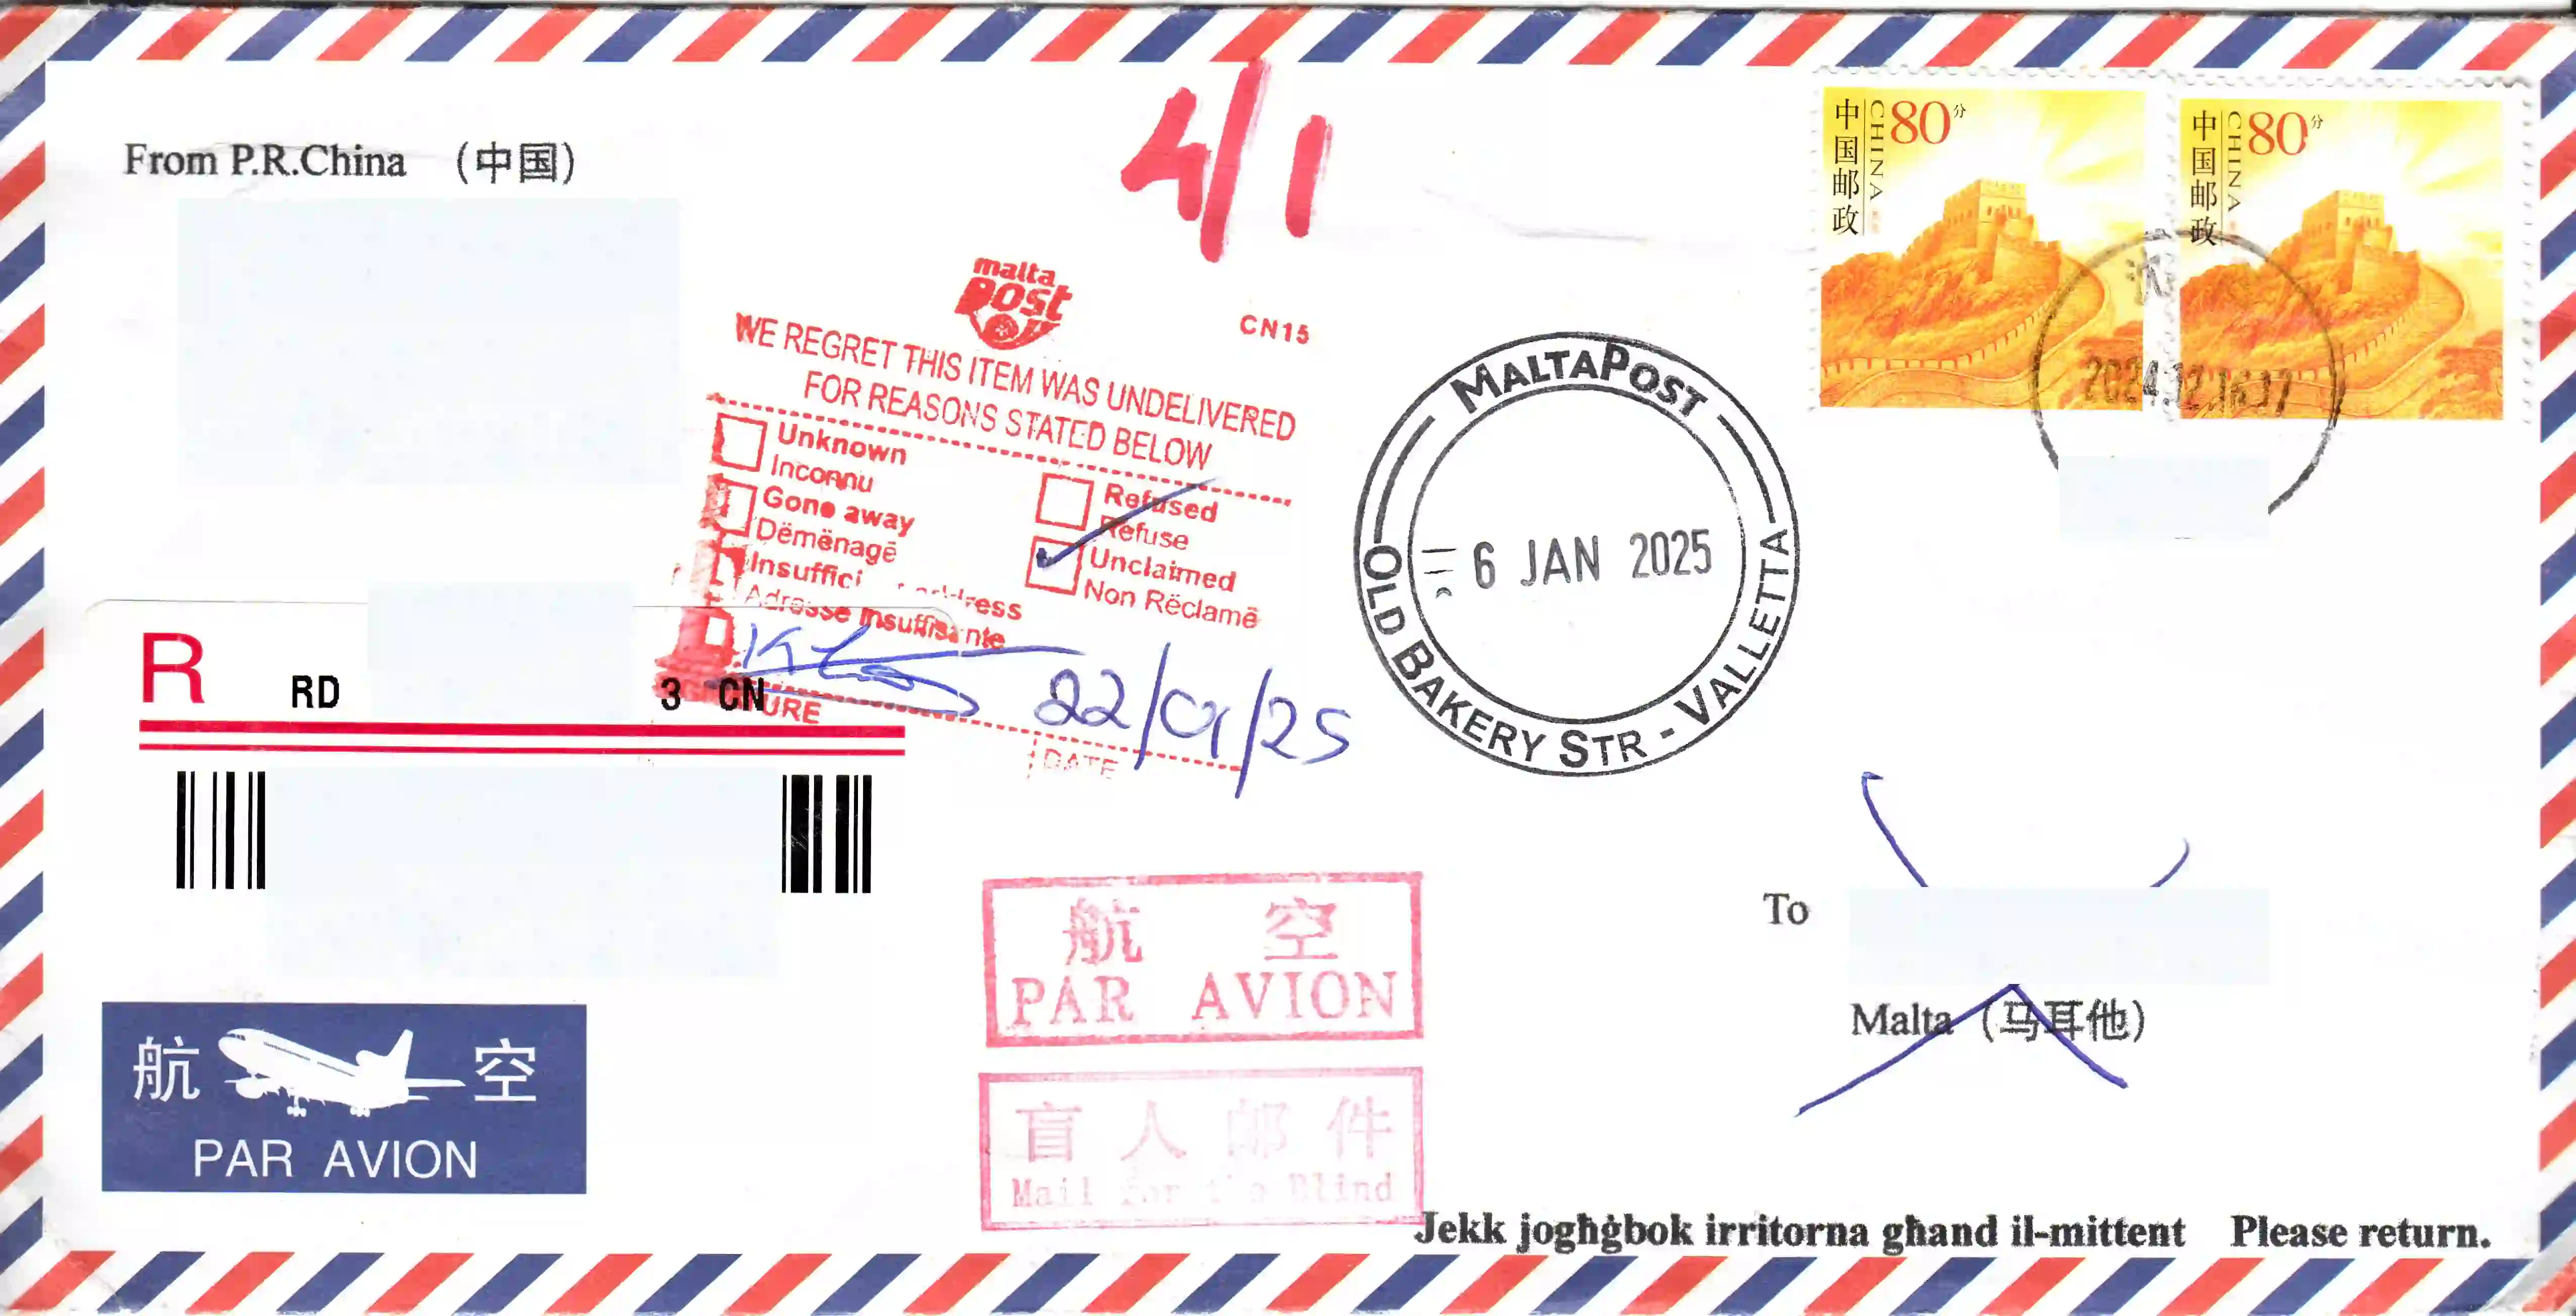 From P.R.China （中国）
4/1
中国邮政
CHINA
80分
中国邮政
CHINA
80分
沈
2024.12.16.17
malta
Post
CN15
WE REGRET THIS ITEM WAS UNDELIVERED
FOR REASONS STATED BELOW
Unknown
Inconnu
Gone away
Dëmënagē
Insuffici ress
Adresse insuffisante
Refused
Refuse
Unclaimed
Non Rëclamē
URE
22/01/25
DATE
MALTAPOST
6 JAN 2025
OLD BAKERY STR - VALLETTA
R
RD 3 CN
航空
PAR AVION
盲人邮件
Mail for the Blind
航空
PAR AVION
To
Malta （马耳他）
Jekk jogħġbok irritorna għand il-mittent Please return.